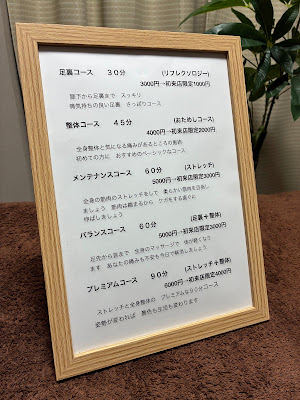 足裏コース　３０分　（リフレクソロジー）
3000円→初来店限定1000円
膝下から足裏まで　スッキリ
痛気持ちの良い足裏　さっぱりコース
整体コース　４５分　（おためしコース）
4000円→初来店限定2000円
全身整体と気になる痛みがあるところの施術
初めての方に　おすすめのベーシックなコース
メンテナンスコース　６０分　（ストレッチ）
5000円→初来店限定3000円
全身の筋肉のストレッチをして　柔らかい筋肉を目指し
ましょう　筋肉は縮まるから　ケガをする前に
伸ばしましょう
バランスコース　６０分　（足裏＋整体）
5000円→初来店限定3000円
足先から首まで　全身のマッサージで　体が軽くなり
ます　あなたの痛みも不安も今日で解消しましょう
プレミアムコース　９０分　（ストレッチ＋整体）
6000円→初来店限定4000円
ストレッチと全身整体の　プレミアムな９０分コース
姿勢が変われば　景色も生活も変わります